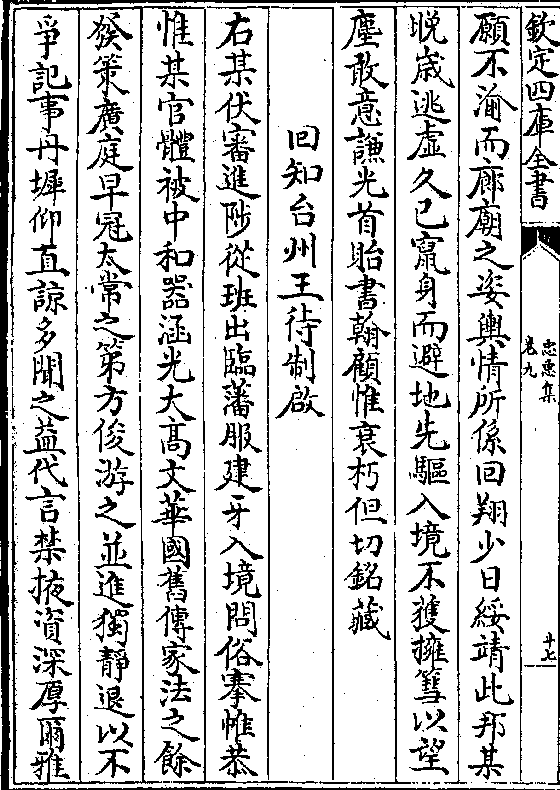 欽定四庫全書
忠惠集
卷九
十七
願不淪而廊廟之姿輿情所係回翔少日綏靖此邦某
晚歳逃虚久已竄身而避地先驅入境不獲擁篲以望
塵敢意謙光首貽書翰顧惟衰朽但切銘藏
回知台州王待制啟
右某伏審進陟從班出臨藩服建牙入境問俗搴帷恭
惟某官體被中和器涵光大髙文華國舊傳家法之餘
發策廣庭早冠太常之第方俊游之並進獨靜退以不
爭記事丹墀仰直諒多聞之益代言禁掖資深厚爾雅